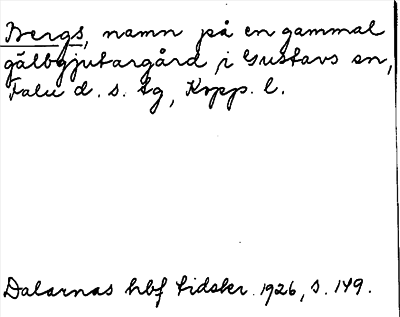 Bergs, namn på en gammal
gälbgjutargård i Gustavs sn,
Falu d. s. lg, Kopp. l.
Dalarnas hbf tidskr. 1926, s. 149.